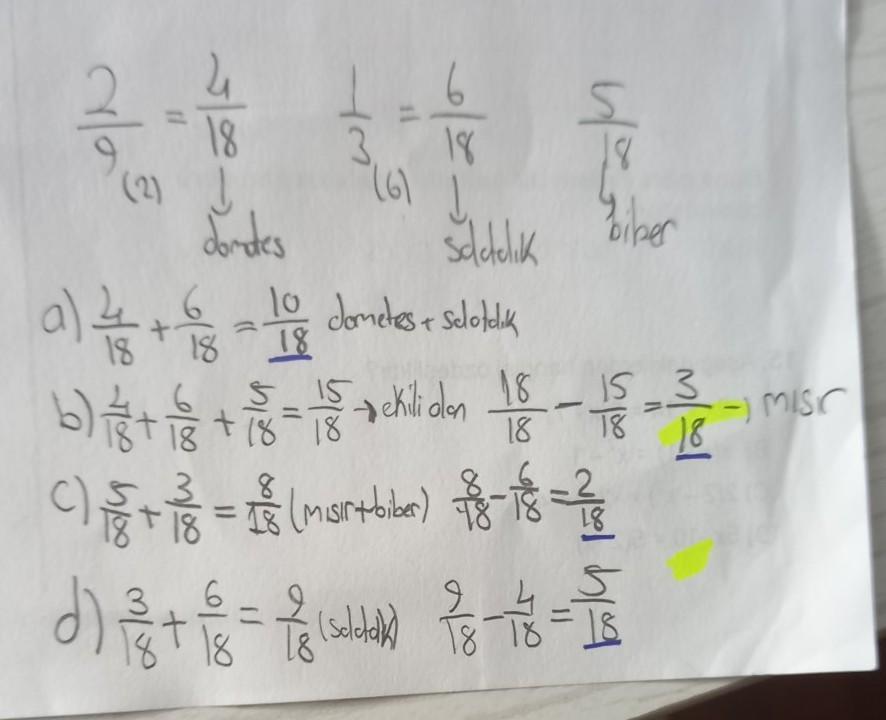 2/9 = 4/18 1/3 = 6/18 5/18
(2) (6)
domates salatalık biber
a) 4/18 + 6/18 = 10/18 domates + salatalık
b) 4/18 + 6/18 + 5/18 = 15/18 → ekili olan 18/18 - 15/18 = 3/18 → mısır
c) 5/18 + 3/18 = 8/18 (mısır+biber) 8/18 - 6/18 = 2/18
d) 3/18 + 6/18 = 9/18 (salatalık) 9/18 - 4/18 = 5/18